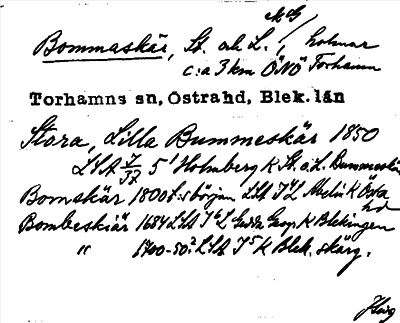 Bommaskär, St. och L., holmar
c:a 3 km ÖNÖ Torhamn
Torhamns sn, Östrahd, Blek. län
Stora, Lilla Bummeskär 1850
LSA I/37 5¹ Holmberg K St. o. L. Bummeskär
Bomskär 1800-t:s början LSA Melin K Östra hd
Bombeskiär 1684 LSA Gedda Geogr K Blekingen
" 1700-50? LSA I 5 K Blek. skärg.